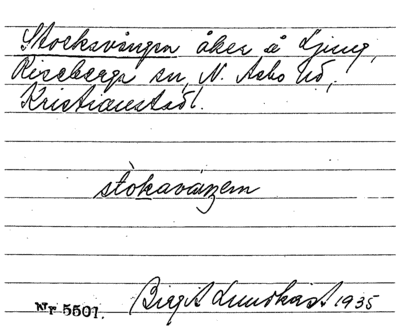 Stocksvången åker å Ljung,
Riseberga sn, N. Åsbo hd,
Kristianstadsl.
stòkaváŋŋen
Nr 5501. Birgit Lundkvist 1935